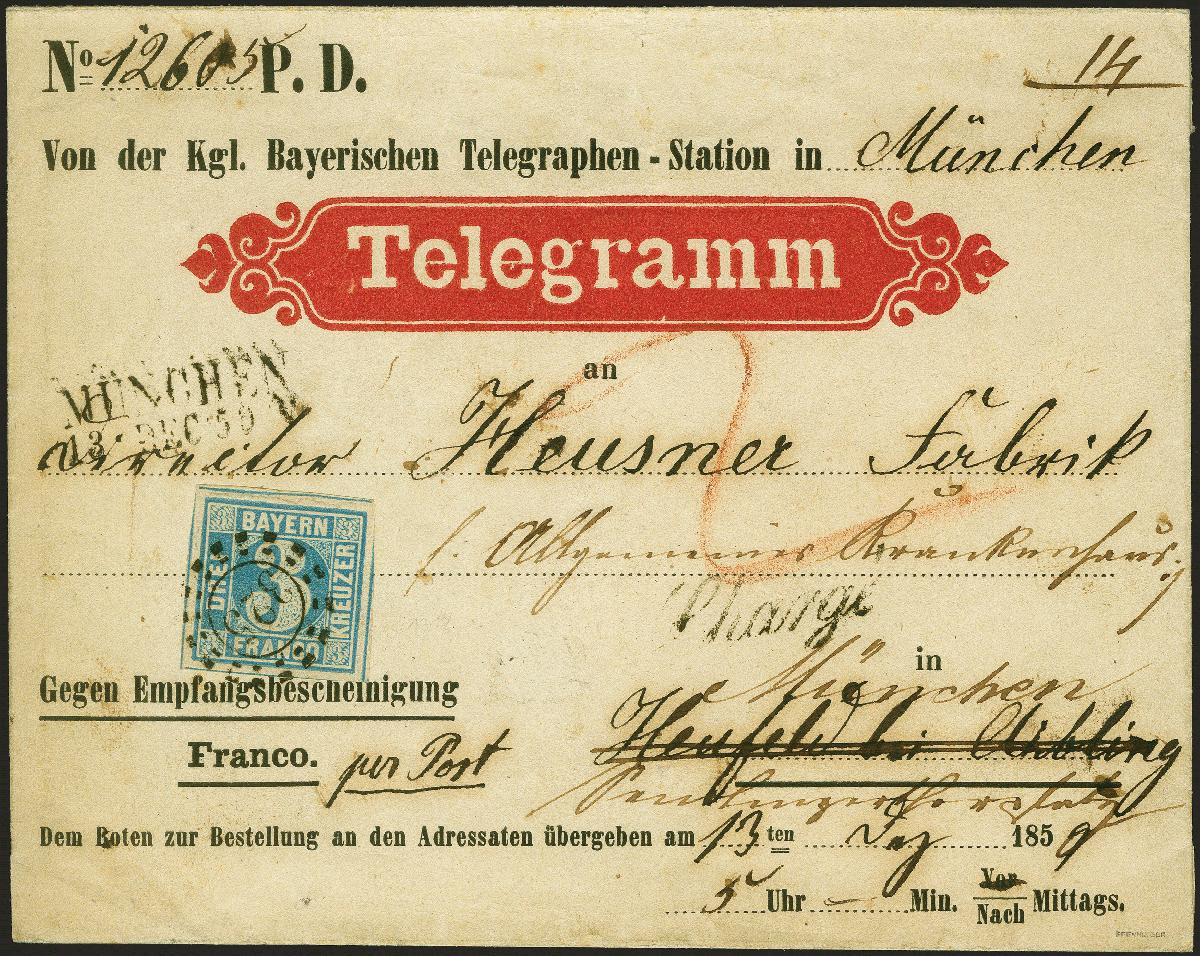 No 12605 P. D.
14
Von der Kgl. Bayerischen Telegraphen-Station in München
Telegramm
an
MÜNCHEN
13 DEC 59
Director Heusner Fabrik
Allgemeines Krankenhaus
BAYERN
DREI
3
KREUZER
FRANCO
Chargé
in
München
Gegen Empfangsbescheinigung
Heufeld bei Aibling
Franco. per Post
Sendlingerthorplatz
Dem Boten zur Bestellung an den Adressaten übergeben am 13ten Dez 1859
5 Uhr - Min. Vor Nach Mittags.